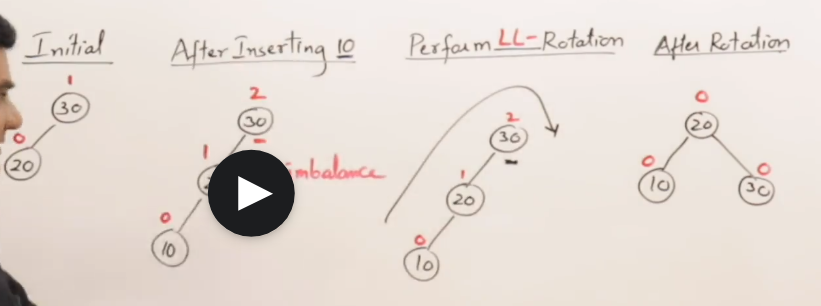 Initial
1
30
0
20
After Inserting 10
2
30
1
imbalance
0
10
Perform LL-Rotation
2
30
1
20
0
10
After Rotation
0
20
0
10
0
30